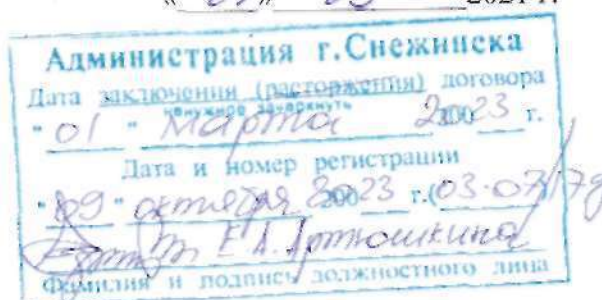 « 01 » 03 2021 г.
Администрация г.Снежинска
Дата заключения (расторжения) договора
ненужное зачеркнуть
" 01 " марта 2023 г.
Дата и номер регистрации
" 09 " октября 2023 г. (03-07/
Е.А. Артюшкина
Фамилия и подпись должностного лица